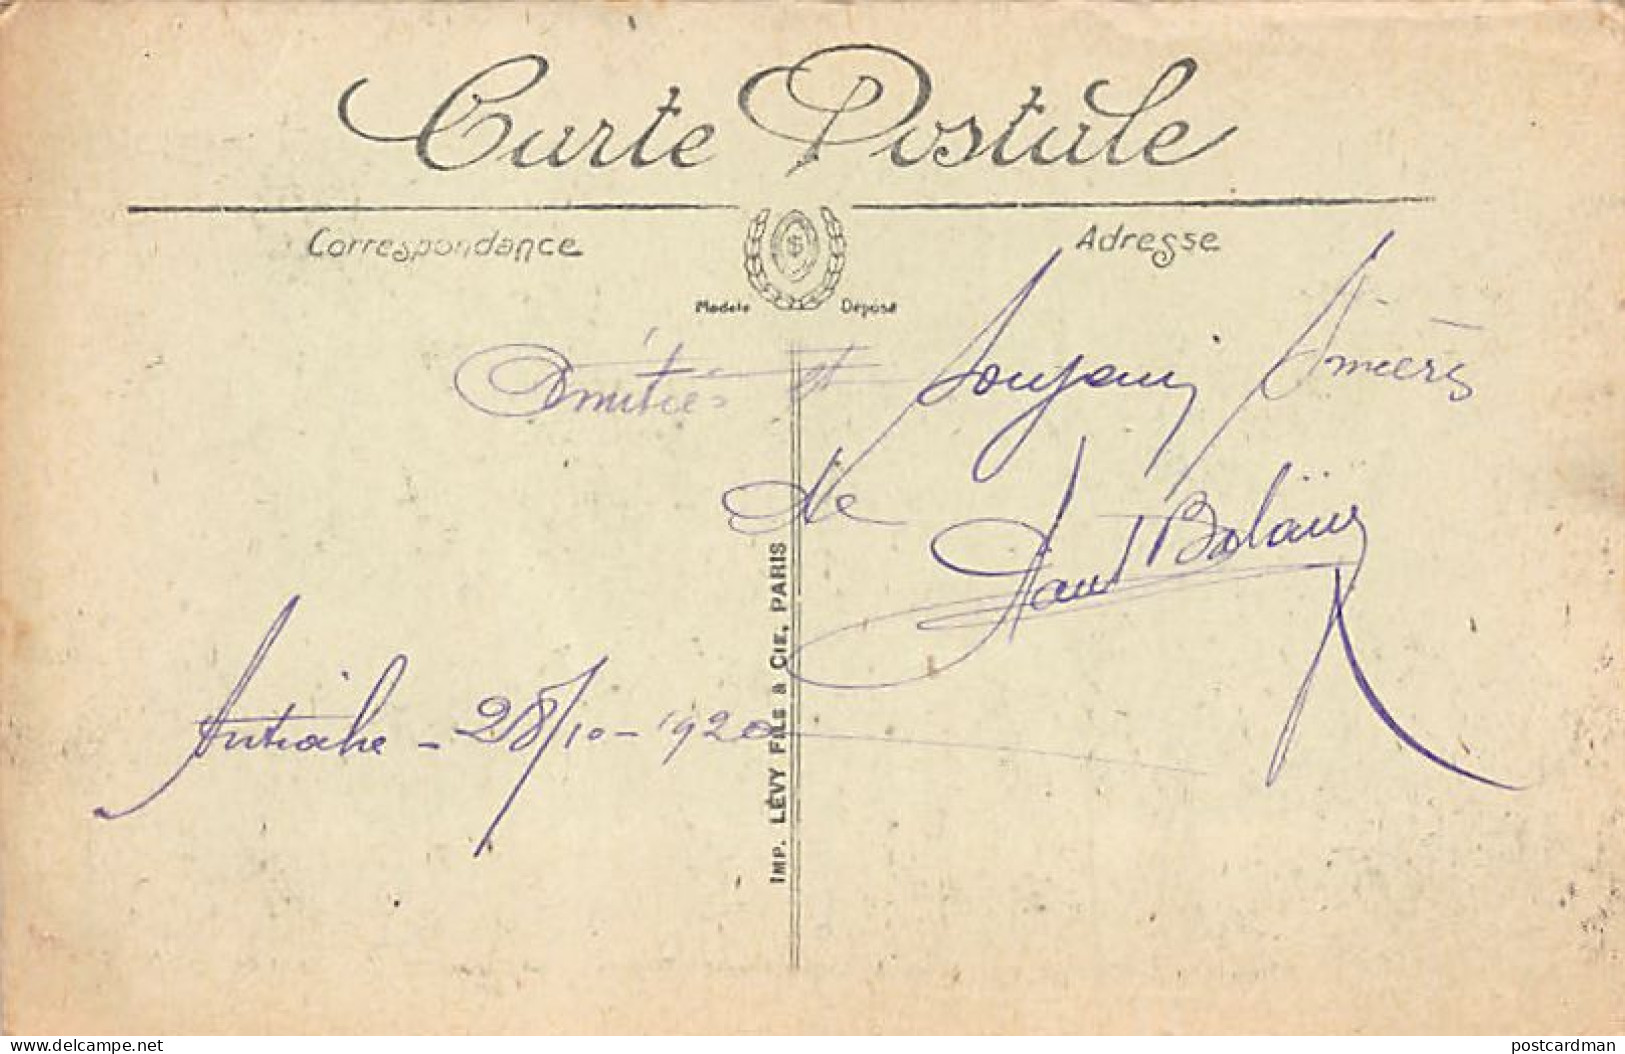 Carte Postale
Correspondance
Adresse
Modèle Déposé
Amitiés et Souvenir Sincères
de
IMP. LÉVY FILS & CIE, PARIS
Antioche - 28/10 - 1920
delcampe.net
postcardman